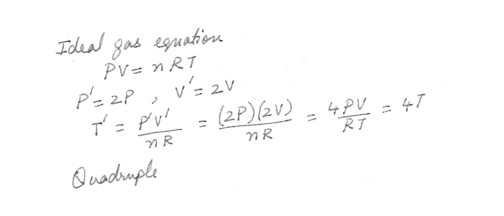 Ideal gas equation
PV = nRT
P' = 2P , V' = 2V
T' = P'V'/nR = (2P)(2V)/nR = 4PV/RT = 4T
Quadruple